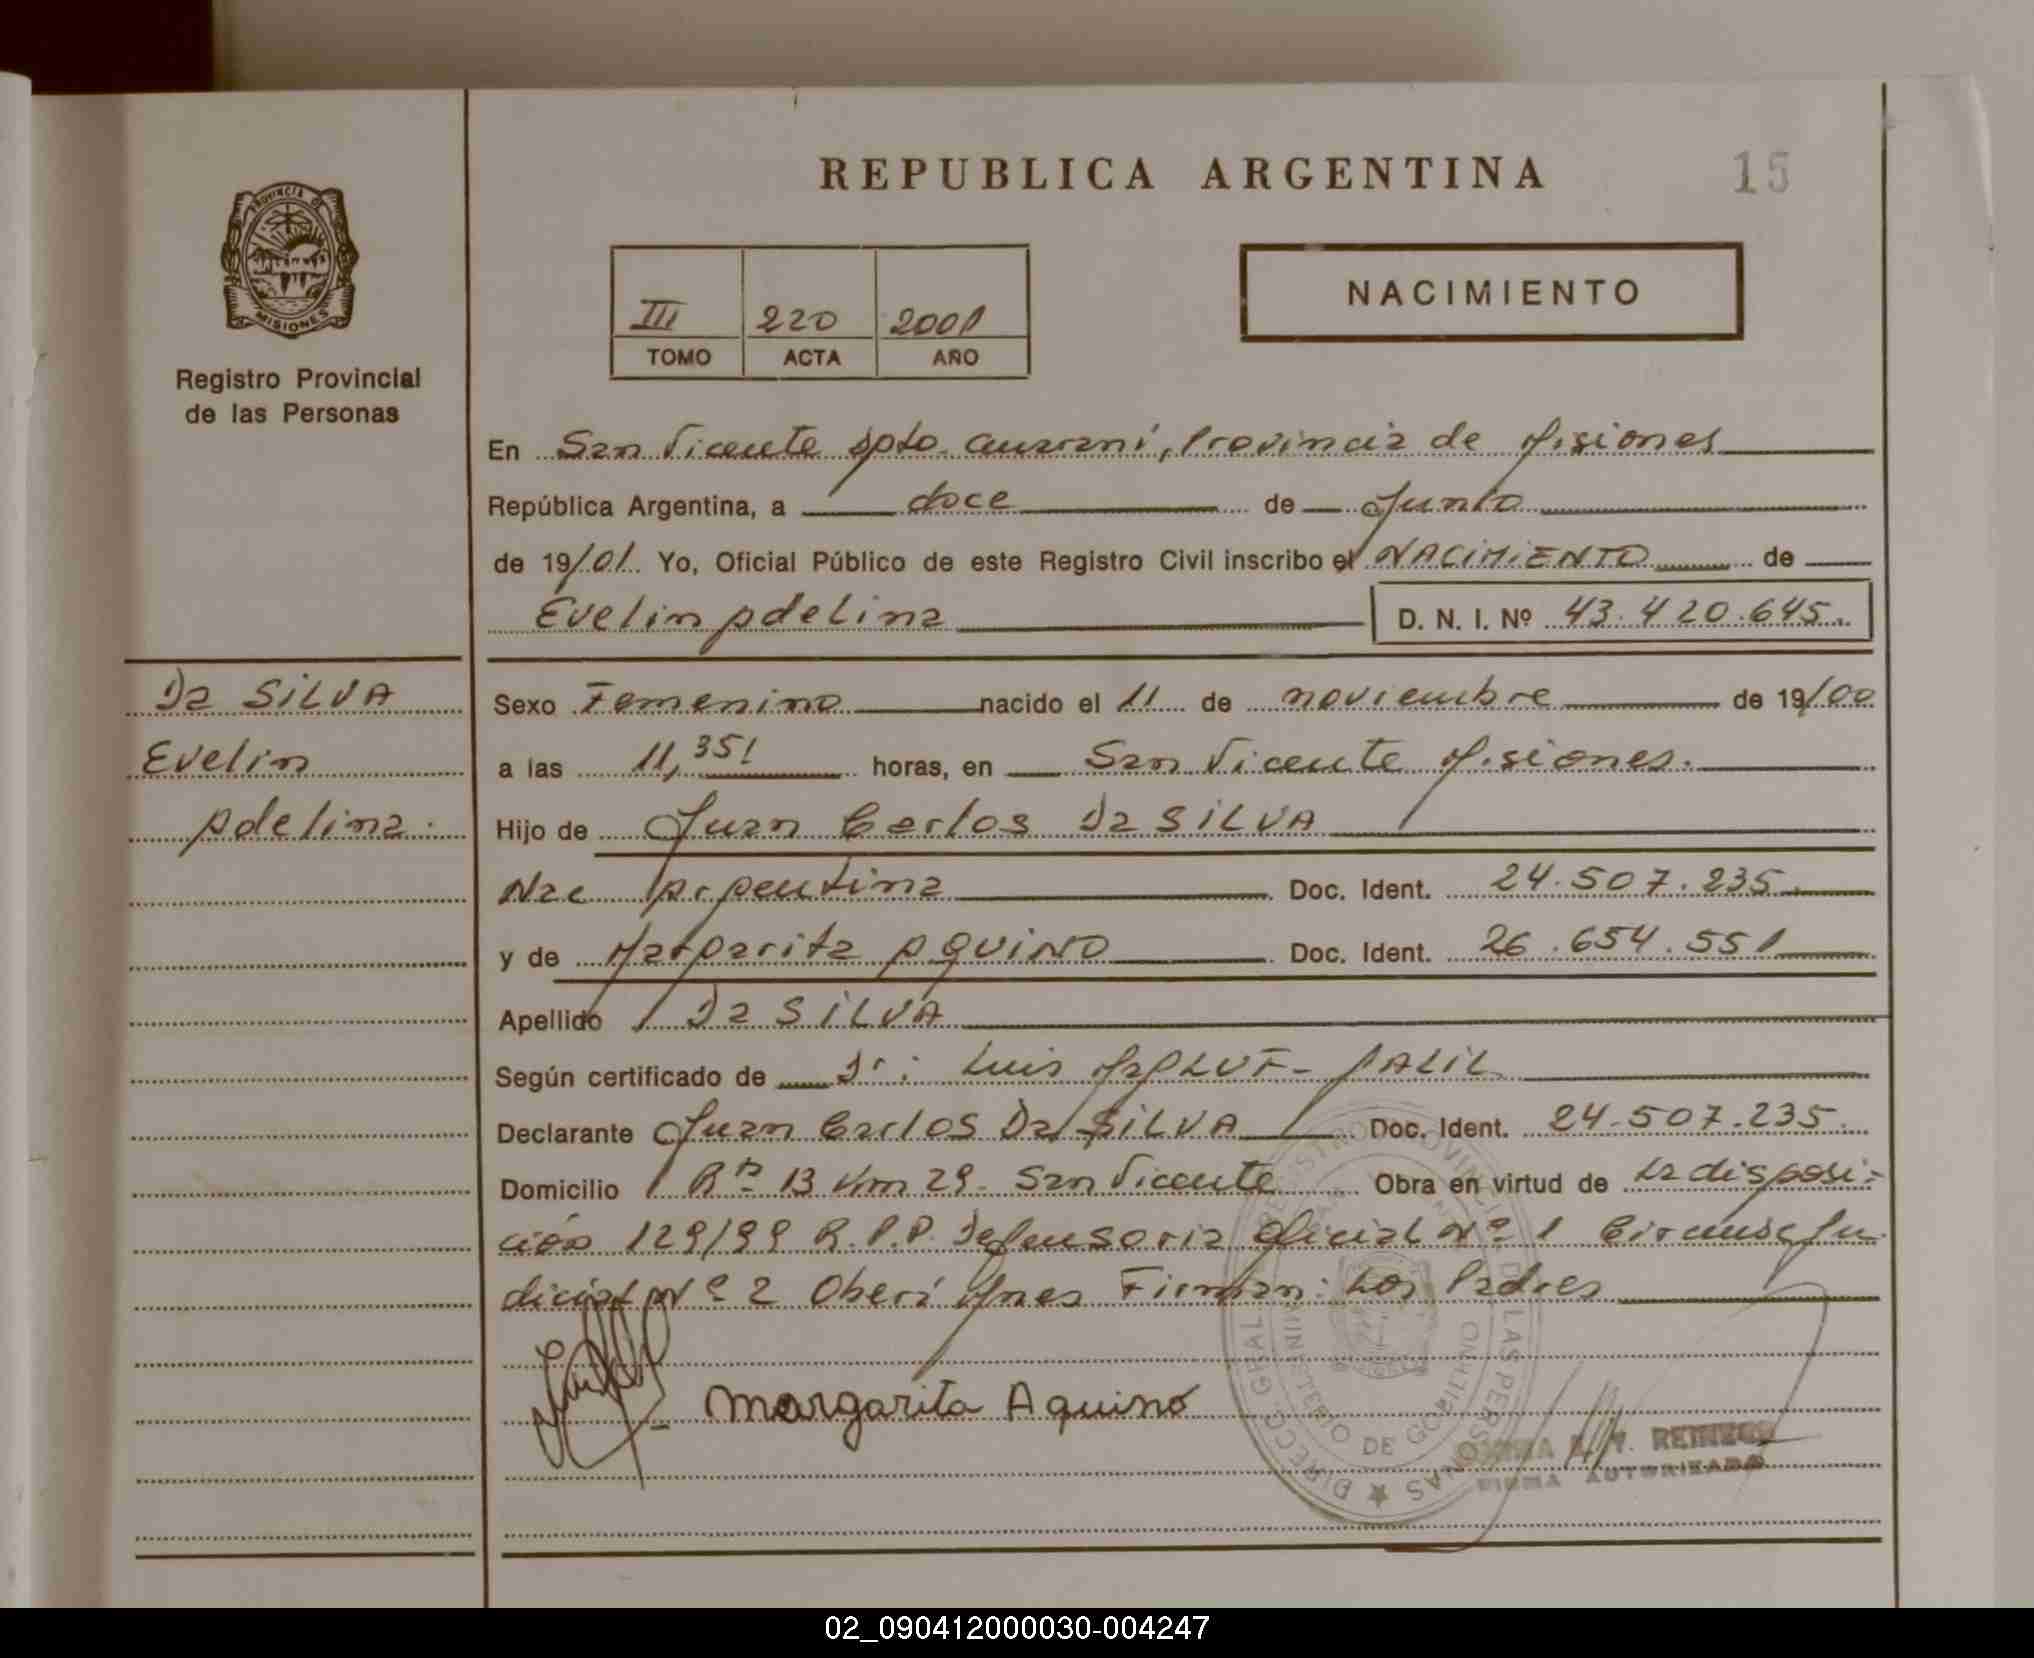 REPUBLICA ARGENTINA
15
PROVINCIA DE
MISIONES
Registro Provincial
de las Personas
III 220 2001
TOMO ACTA AÑO
NACIMIENTO
En San Vicente Dpto. Guaraní, Provincia de Misiones
República Argentina, a doce de Junio
de 19/01. Yo, Oficial Público de este Registro Civil inscribo el NACIMIENTO de
Evelin Adelina D. N. I. Nº 43.420.645.
Da SILVA
Evelin
Adelina.
Sexo Femenino nacido el 11 de noviembre de 19/00
a las 11,35 horas, en San Vicente Misiones.
Hijo de Juan Carlos Da SILVA
Nac Argentina Doc. Ident. 24.507.235
y de Margarita AQUINO Doc. Ident. 26.654.551
Apellido Da SILVA
Según certificado de Dr: Luis JALIL
Declarante Juan Carlos Da SILVA Doc. Ident. 24.507.235.
Domicilio Rta 13 Km 29. San Vicente Obra en virtud de la disposi-
ción 129/99 R.P.P. Defensoria Oficial Nº 1 Circunsc Ju
dicial Nº 2 Oberá Mnes Firman: Los Padres
Margarita Aquino
FIRMA AUTORIZADA
DIRECC. GRAL. REGISTRO PROVINCIAL DE LAS PERSONAS
MINISTERIO DE GOBIERNO
02_090412000030-004247